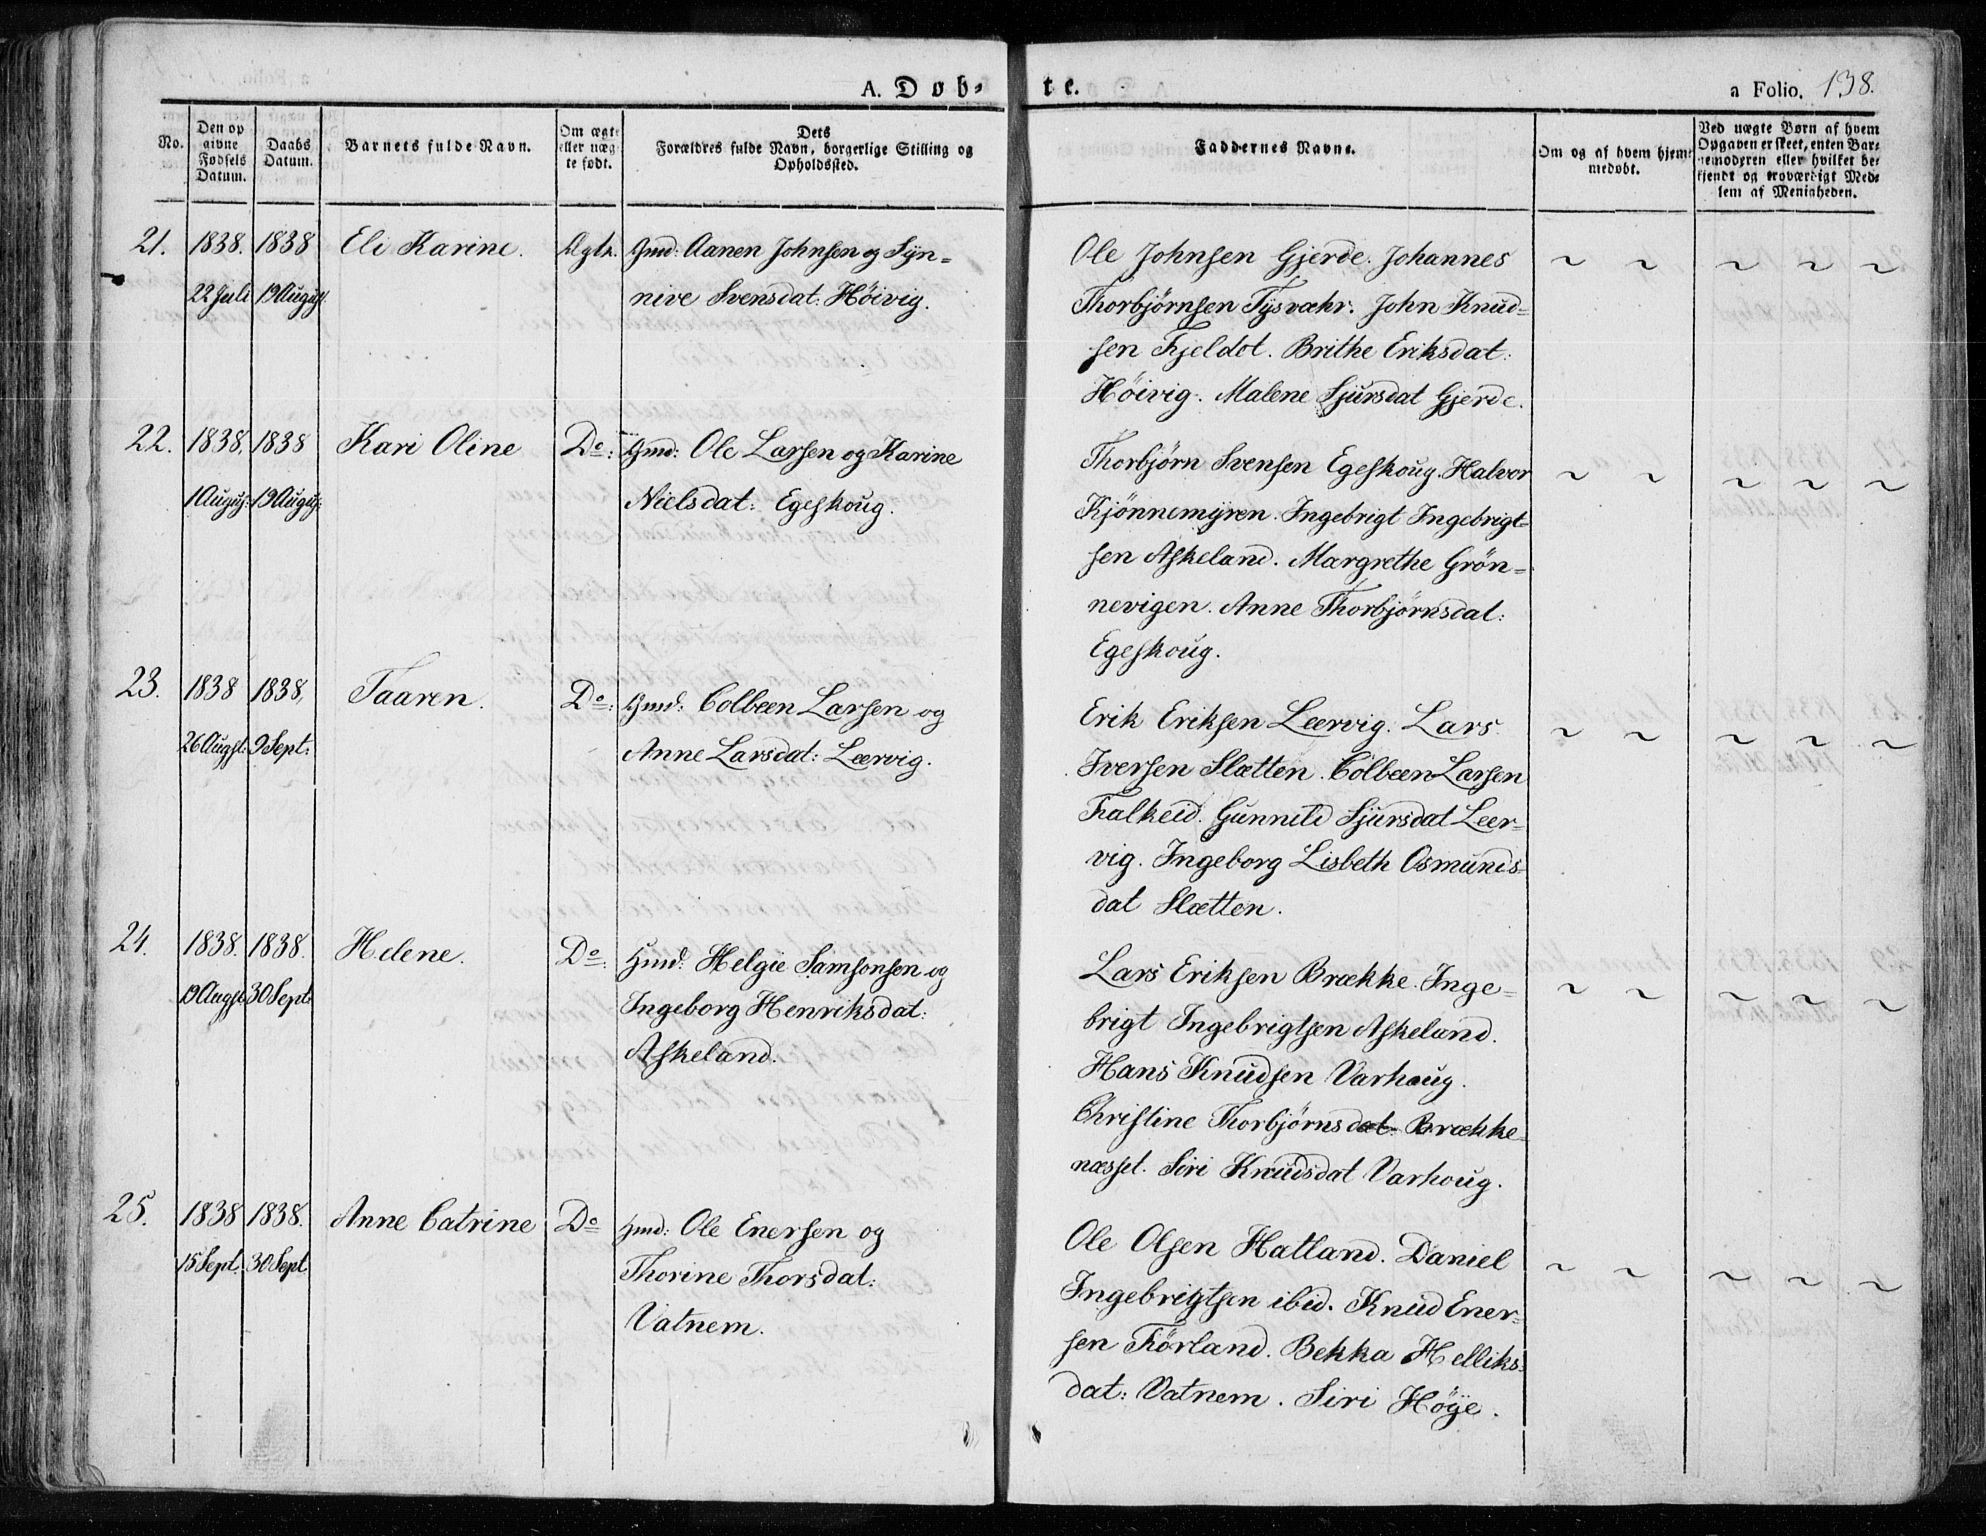 A. Døb-
te.
a Folio. 138.
No.
Den op
givne
Fødsels
Datum.
Daabs
Datum.
Barnets fulde Navn.
Om ægte
eller uæg
te født.
Dets
Forældres fulde Navn, borgerlige Stilling og
Opholdssted.
Faddernes Navne.
Om og af hvem hjem-
medøbt.
Ved uægte Børn af hvem
Opgaven er skeet, enten Bar-
nemoderen eller hvilket be-
kjendt og troværdigt Med-
lem af Menigheden.
21. 1838. 1838 Eli Karine. Ægte. Gmd: Aanen Johnsen og Syn-
22 Juli 19 August nive Svensdat: Höivig.
Ole Johnsen Gjerde. Johannes ~ ~ ~ ~ ~
Thorbjörnsen Tysvæhr. John Knud-
sen Fjeldot. Brithe Eriksdat:
Höivig. Malene Sjursdat Gjerde.
22. 1838. 1838 Kari Oline Do: Gmd: Ole Larsen og Karine
1 Augus: 19 Augus: Nielsdat: Egeskoug.
Thorbjörn Svensen Egeskoug. Halvor ~ ~ ~ ~ ~
Kjönnemyren. Ingebrigt Ingebrigt-
sen Askeland. Margrethe Grön-
nevigen. Anne Thorbjörnsdat:
Egeskoug.
23. 1838 1838, Taaren. Do: Gmd: Colbeen Larsen og
26 Augst: 9 Sept: Anne Larsdat: Leervig.
Erik Eriksen Leervig. Lars ~ ~ ~ ~ ~
Iversen Slætten. Colbeen Larsen
Falkeid. Gunnild Sjursdat Leer-
vig. Ingeborg Lisbeth Osmunds-
dat Slætten.
24. 1838. 1838. Helene. Do: Gmd: Helgie Samsonsen og
19 Augst. 30 Sept: Ingeborg Henriksdat:
Askeland.
Lars Eriksen Brække. Inge- ~ ~ ~ ~ ~
brigt Ingebrigtsen Askeland.
Hans Knudsen Varhaug.
Christine Thorbjørnsdat: Brække-
næsset. Siri Knudsdat Varhoug.
25. 1838 1838. Anne Catrine Do Gmd: Ole Enersen og
15 Sept. 30 Sept. Thorine Thorsdat:
Vatnem.
Ole Olsen Hatland. Daniel ~ ~ ~ ~ ~
Ingebrigtsen ibid. Knud Ener-
sen Förland. Bekka Helliks-
dat: Vatnem. Siri Höye.